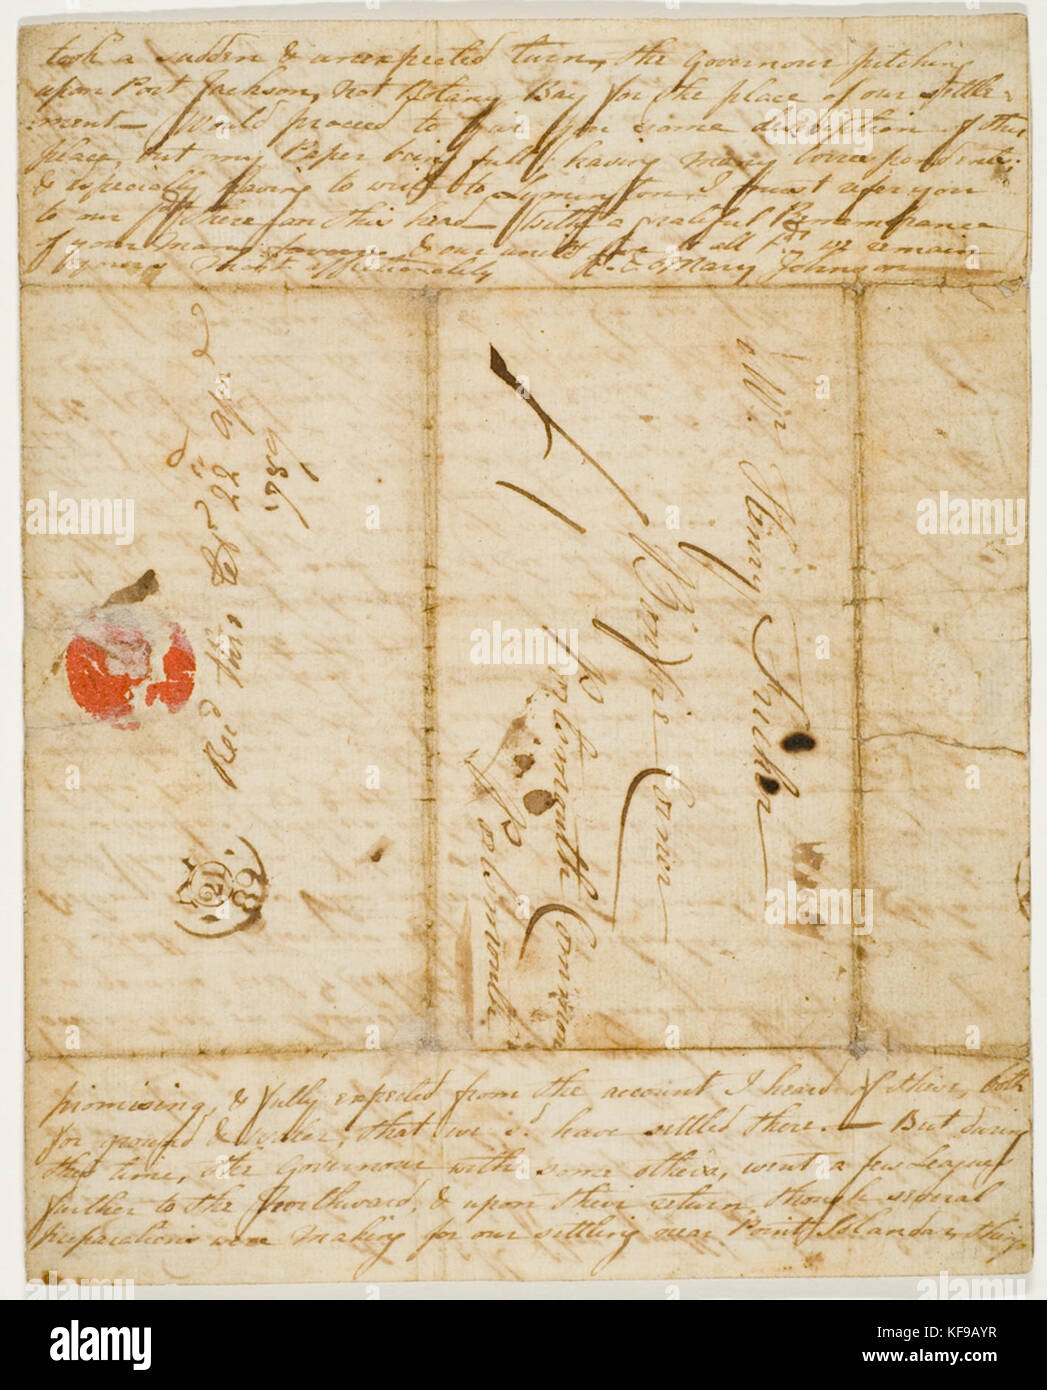 took a sudden & unexpected turn, the Governour pitching
upon Port Jackson, not Botany Bay for the place of our settle-
ment— Would proceed to give you some discription of this
place, but my Paper being full & having many Correspondents
& especially having to write to Lymington, I must refer you
to our Father on this head— With a grateful Remembrance
of your many favours, & our united love to all we remain
yours most affectionately R. & Mary Johnson
Recd this 22 Ap
1789
21
89
Mr Henry Fricker
Wimpie Corner
Portsmouth Common
Portsmouth
promising, & fully expected from the account I heard of these, both
for ground & water, that we sd. have settled there.— But during
this time, the Governour with some others, went a few Leagues
further to the Northward, & upon their return, though several
preparations were making for our settling near Point Islanda & this
alamy
alamy stock photo
KF9AYR
www.alamy.com